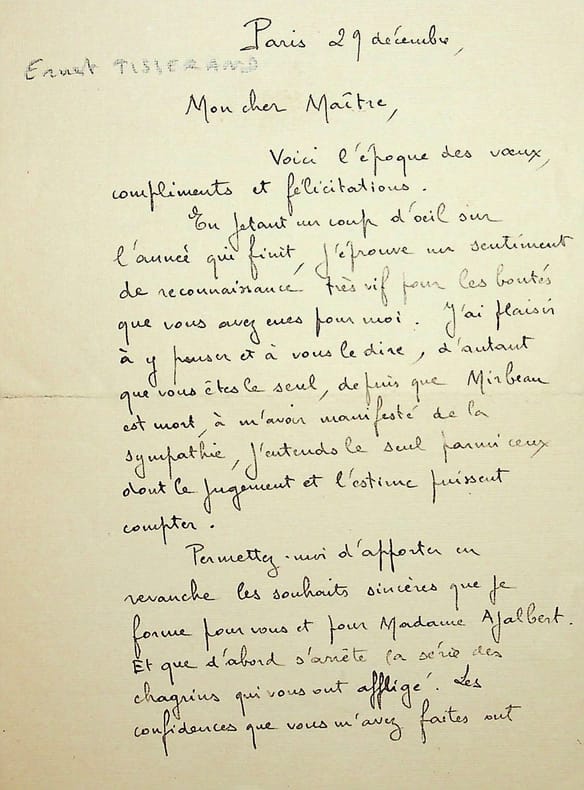 Paris 29 décembre,
Ernest TISSERAND
Mon cher Maître,
Voici l'époque des vœux,
compliments et félicitations.
En jetant un coup d'oeil sur
l'année qui finit, j'éprouve un sentiment
de reconnaissance très vif pour les bontés
que vous avez eues pour moi. J'ai plaisir
à y penser et à vous le dire, d'autant
que vous êtes le seul, depuis que Mirbeau
est mort, à m'avoir manifesté de la
sympathie, j'entends le seul parmi ceux
dont le jugement et l'estime puissent
compter.
Permettez-moi d'apporter en
revanche les souhaits sincères que je
forme pour vous et pour Madame Ajalbert.
Et que d'abord s'arrête la série des
chagrins qui vous ont affligé. Les
confidences que vous m'avez faites ont